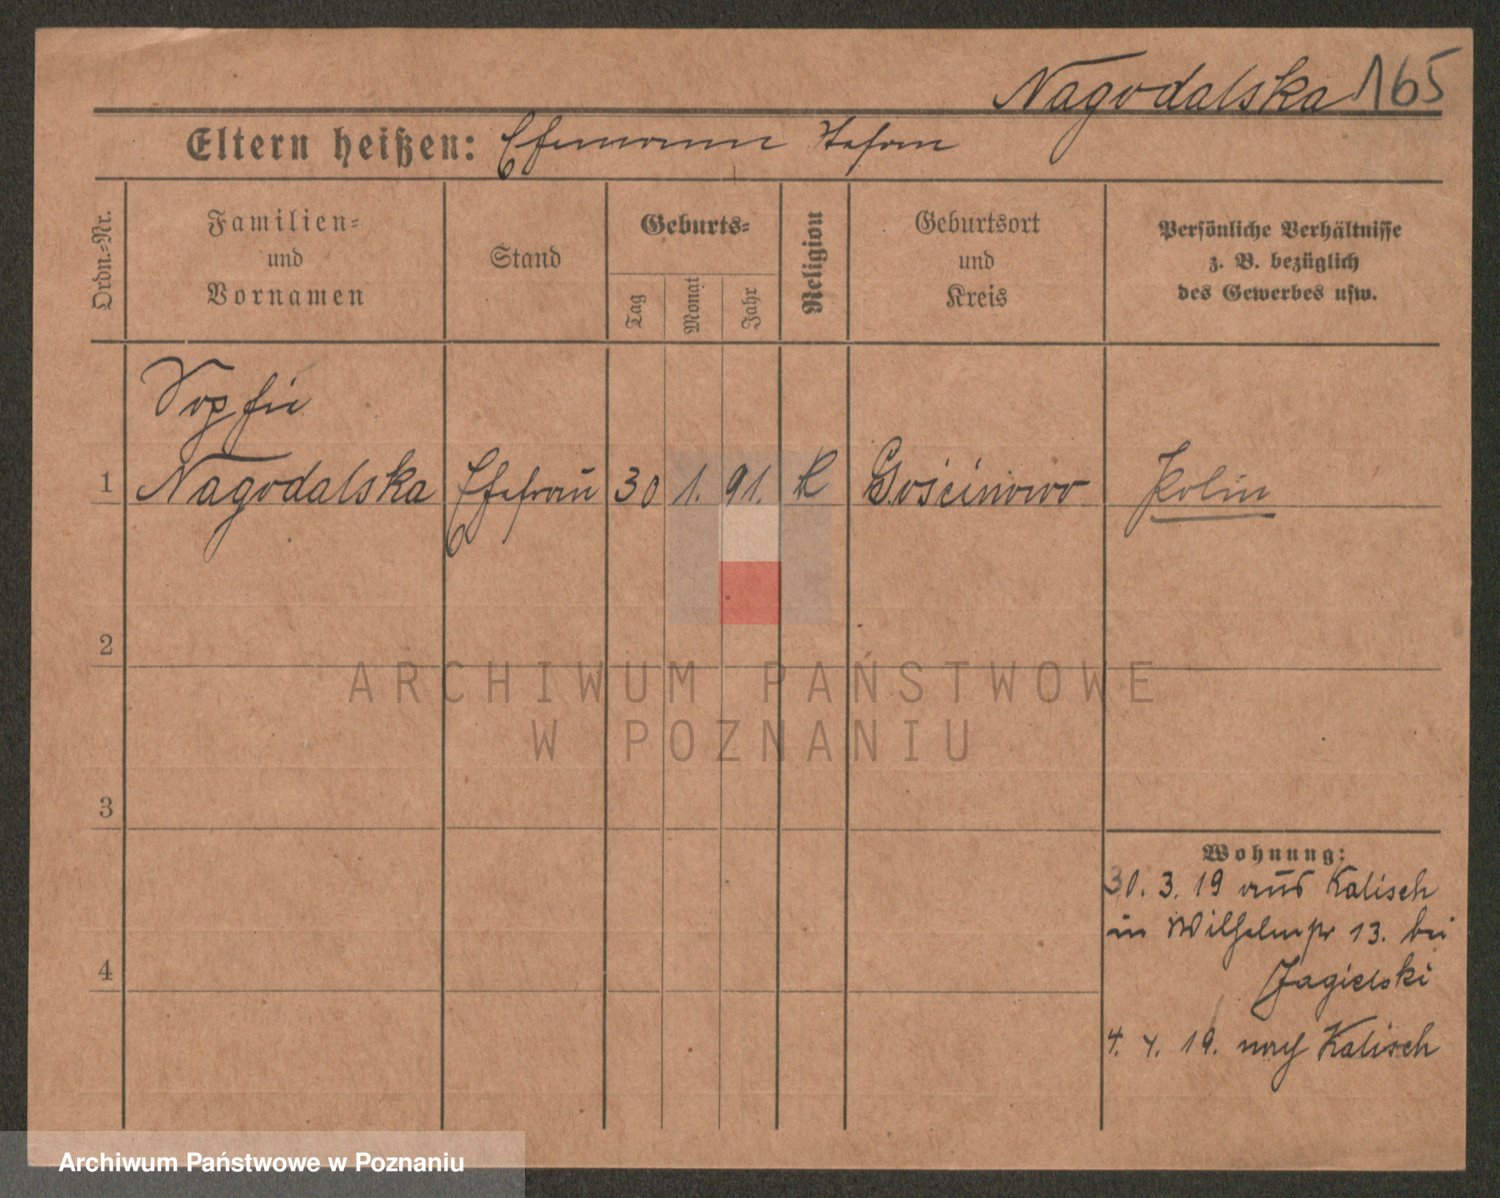 Nagodalska 165
Eltern heißen: Ehemann Stefan
Ordn.-Nr.
Familien-
und
Vornamen
Stand
Geburts-
Tag
Monat
Jahr
Religion
Geburtsort
und
Kreis
Persönliche Verhältnisse
z. B. bezüglich
des Gewerbes usw.
Sophie
1 Nagodalska Ehefrau 30 1. 91. K Gościnowo Polin
2
3
4
Wohnung:
30. 3. 19 aus Kalisch
in Wilhelmstr 13. bei
Jagielski
4. 4. 19. nach Kalisch
ARCHIWUM PAŃSTWOWE
W POZNANIU
Archiwum Państwowe w Poznaniu